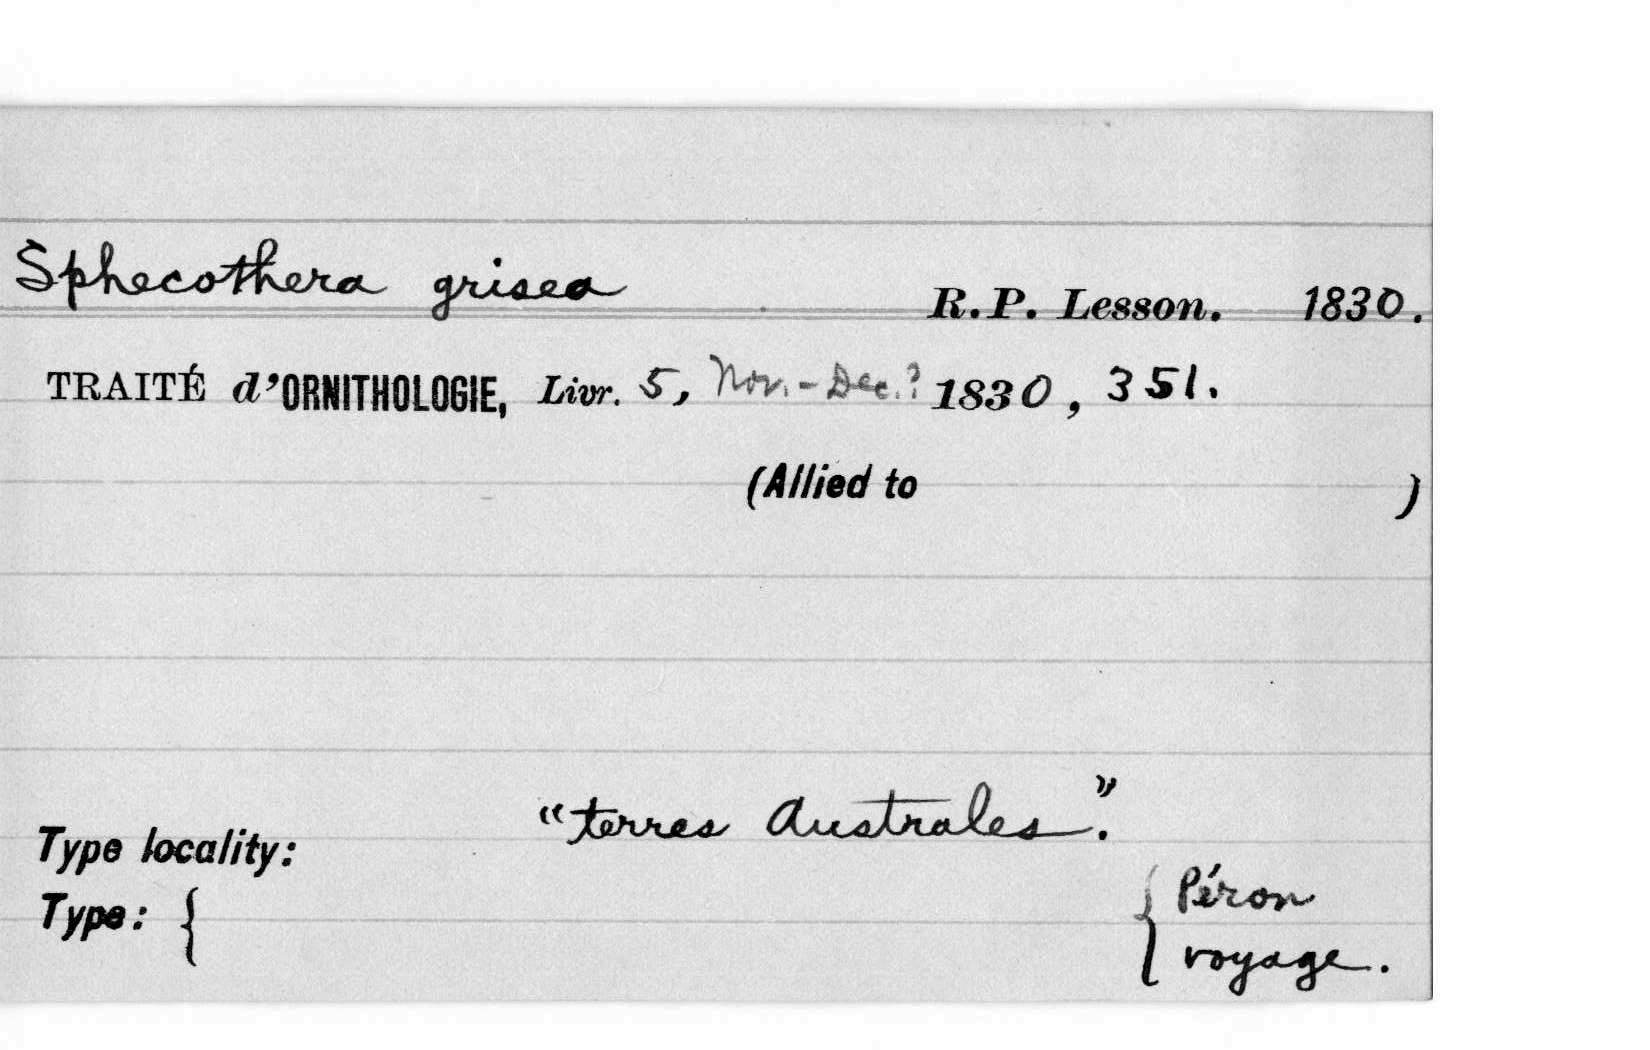 Sphecothera grisea R.P. Lesson. 1830.
TRAITÉ d'ORNITHOLOGIE, Livr. 5, Nov.-Dec.? 1830, 351.
(Allied to )
Type locality: "terres Australes".
Type: { { Péron
voyage.